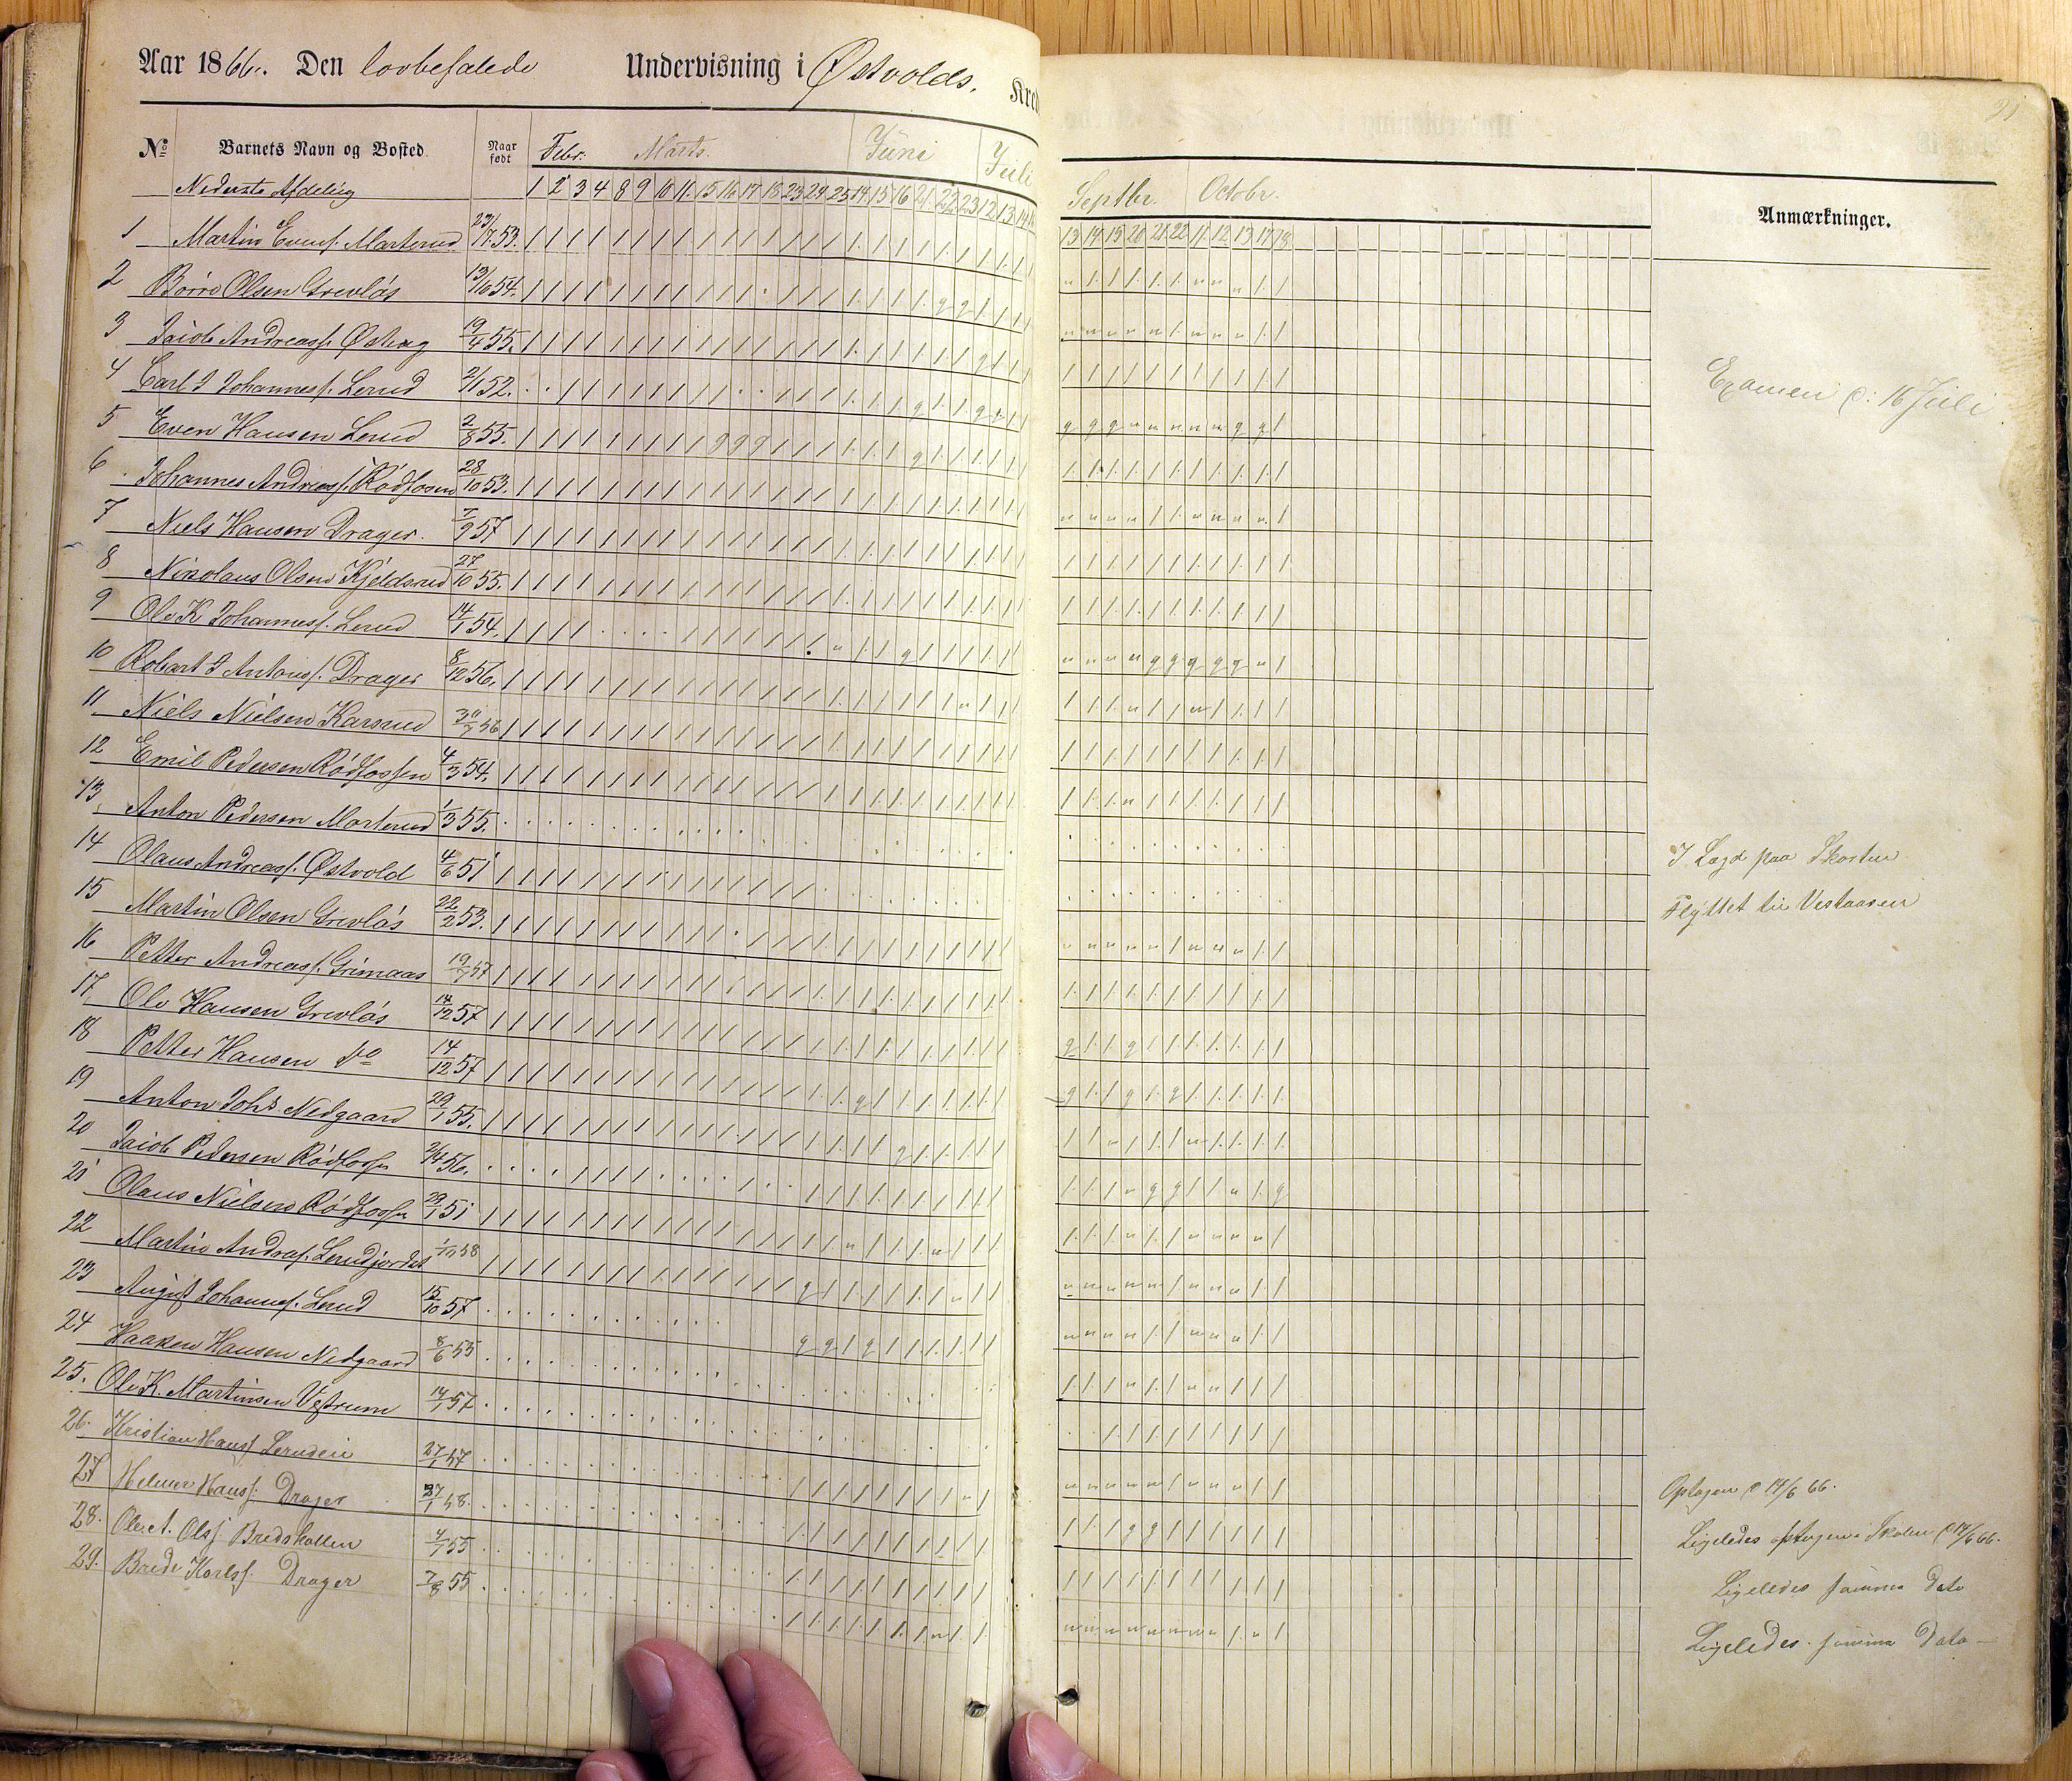 Aar 1866. Den lovbefalede Undervisning i Østvolds. Kred
21
No Barnets Navn og Bosted. Naar født Febr. Marts. Juni Juli
Septbr. Octobr. Anmærkninger.
Nederste Afdeling 1 2 3 4 8 9 10 11 15 16 17 18 23 24 25 14 15 16 21 22 23 12 13 14
13 14 15 20 21 22 11 12 13 17 18
1 Martin Evens. Marterud 23/7 53.
2 Börre Olsen Grevlös 13/10 54.
3 Jacob Andreass. Østhag 19/4 55.
Examen d: 16 Juli
4 Carl J Johanness. Lerud 2/1 52.
5 Even Hansen Lerud 2/8 55.
6 Johannes Andreass. Rödfossen 28/10 53.
7 Niels Hansen Drager. 7/9 57
8 Nikolaus Olsen Kjeldsrud 27/10 55.
9 Ole K Johanness. Lerud 14/1 54.
10 Robart J Antons. Drager 8/12 56.
11 Niels Nielsen Karsrud 30/7 56
12 Emil Pedersen Rödfossen 4/3 54.
13 Anton Pedersen Marterud 1/3 55.
I Lægd paa Skosten
14 Olaus Andreass. Østvold 4/6 51
Flyttet til Vestaasen
15 Martin Olsen Grevlös 22/2 53.
16 Petter Andreass. Grimaas 19/7 57
17 Ole Hansen Grevlös 14/12 57
18 Petter Hansen do 14/12 57
19 Anton Johs Nedgaard 29/1 55.
20 Jacob Pedersen Rödfossen 2/4 56.
21 Olaus Nielsen Rödfossen 29/1 51
22 Martin Andreas. Lerudjordet 1/12 58
23 August Johannes. Lerud 15/10 57
24 Haaken Hansen Nedgaard 8/6 55
25. Ole K. Martinsen Vestrum 14/1 57
26. Kristian Hans. Lerudeie 27/1 57
Optagen d 14/6 66.
27 Helmer Hanss. Drager 27/1 58.
Ligeledes optagen i Skolen d 14/6 66.
28. Ole A. Olss. Bredskallen 4/1 55
Ligeledes samme Dato
29. Brede Karlss. Drager 7/8 55
Ligeledes samme Dato